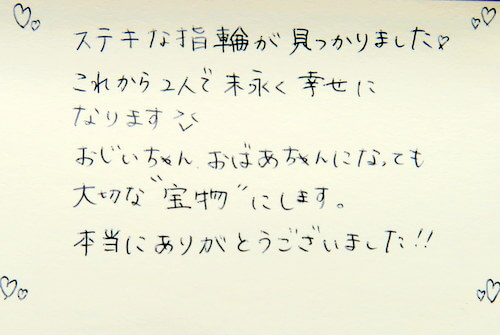 ステキな指輪が見つかりました♡
これから2人で末永く幸せに
なります
おじいちゃん、おばあちゃんになっても
大切な"宝物"にします。
本当にありがとうございました!!